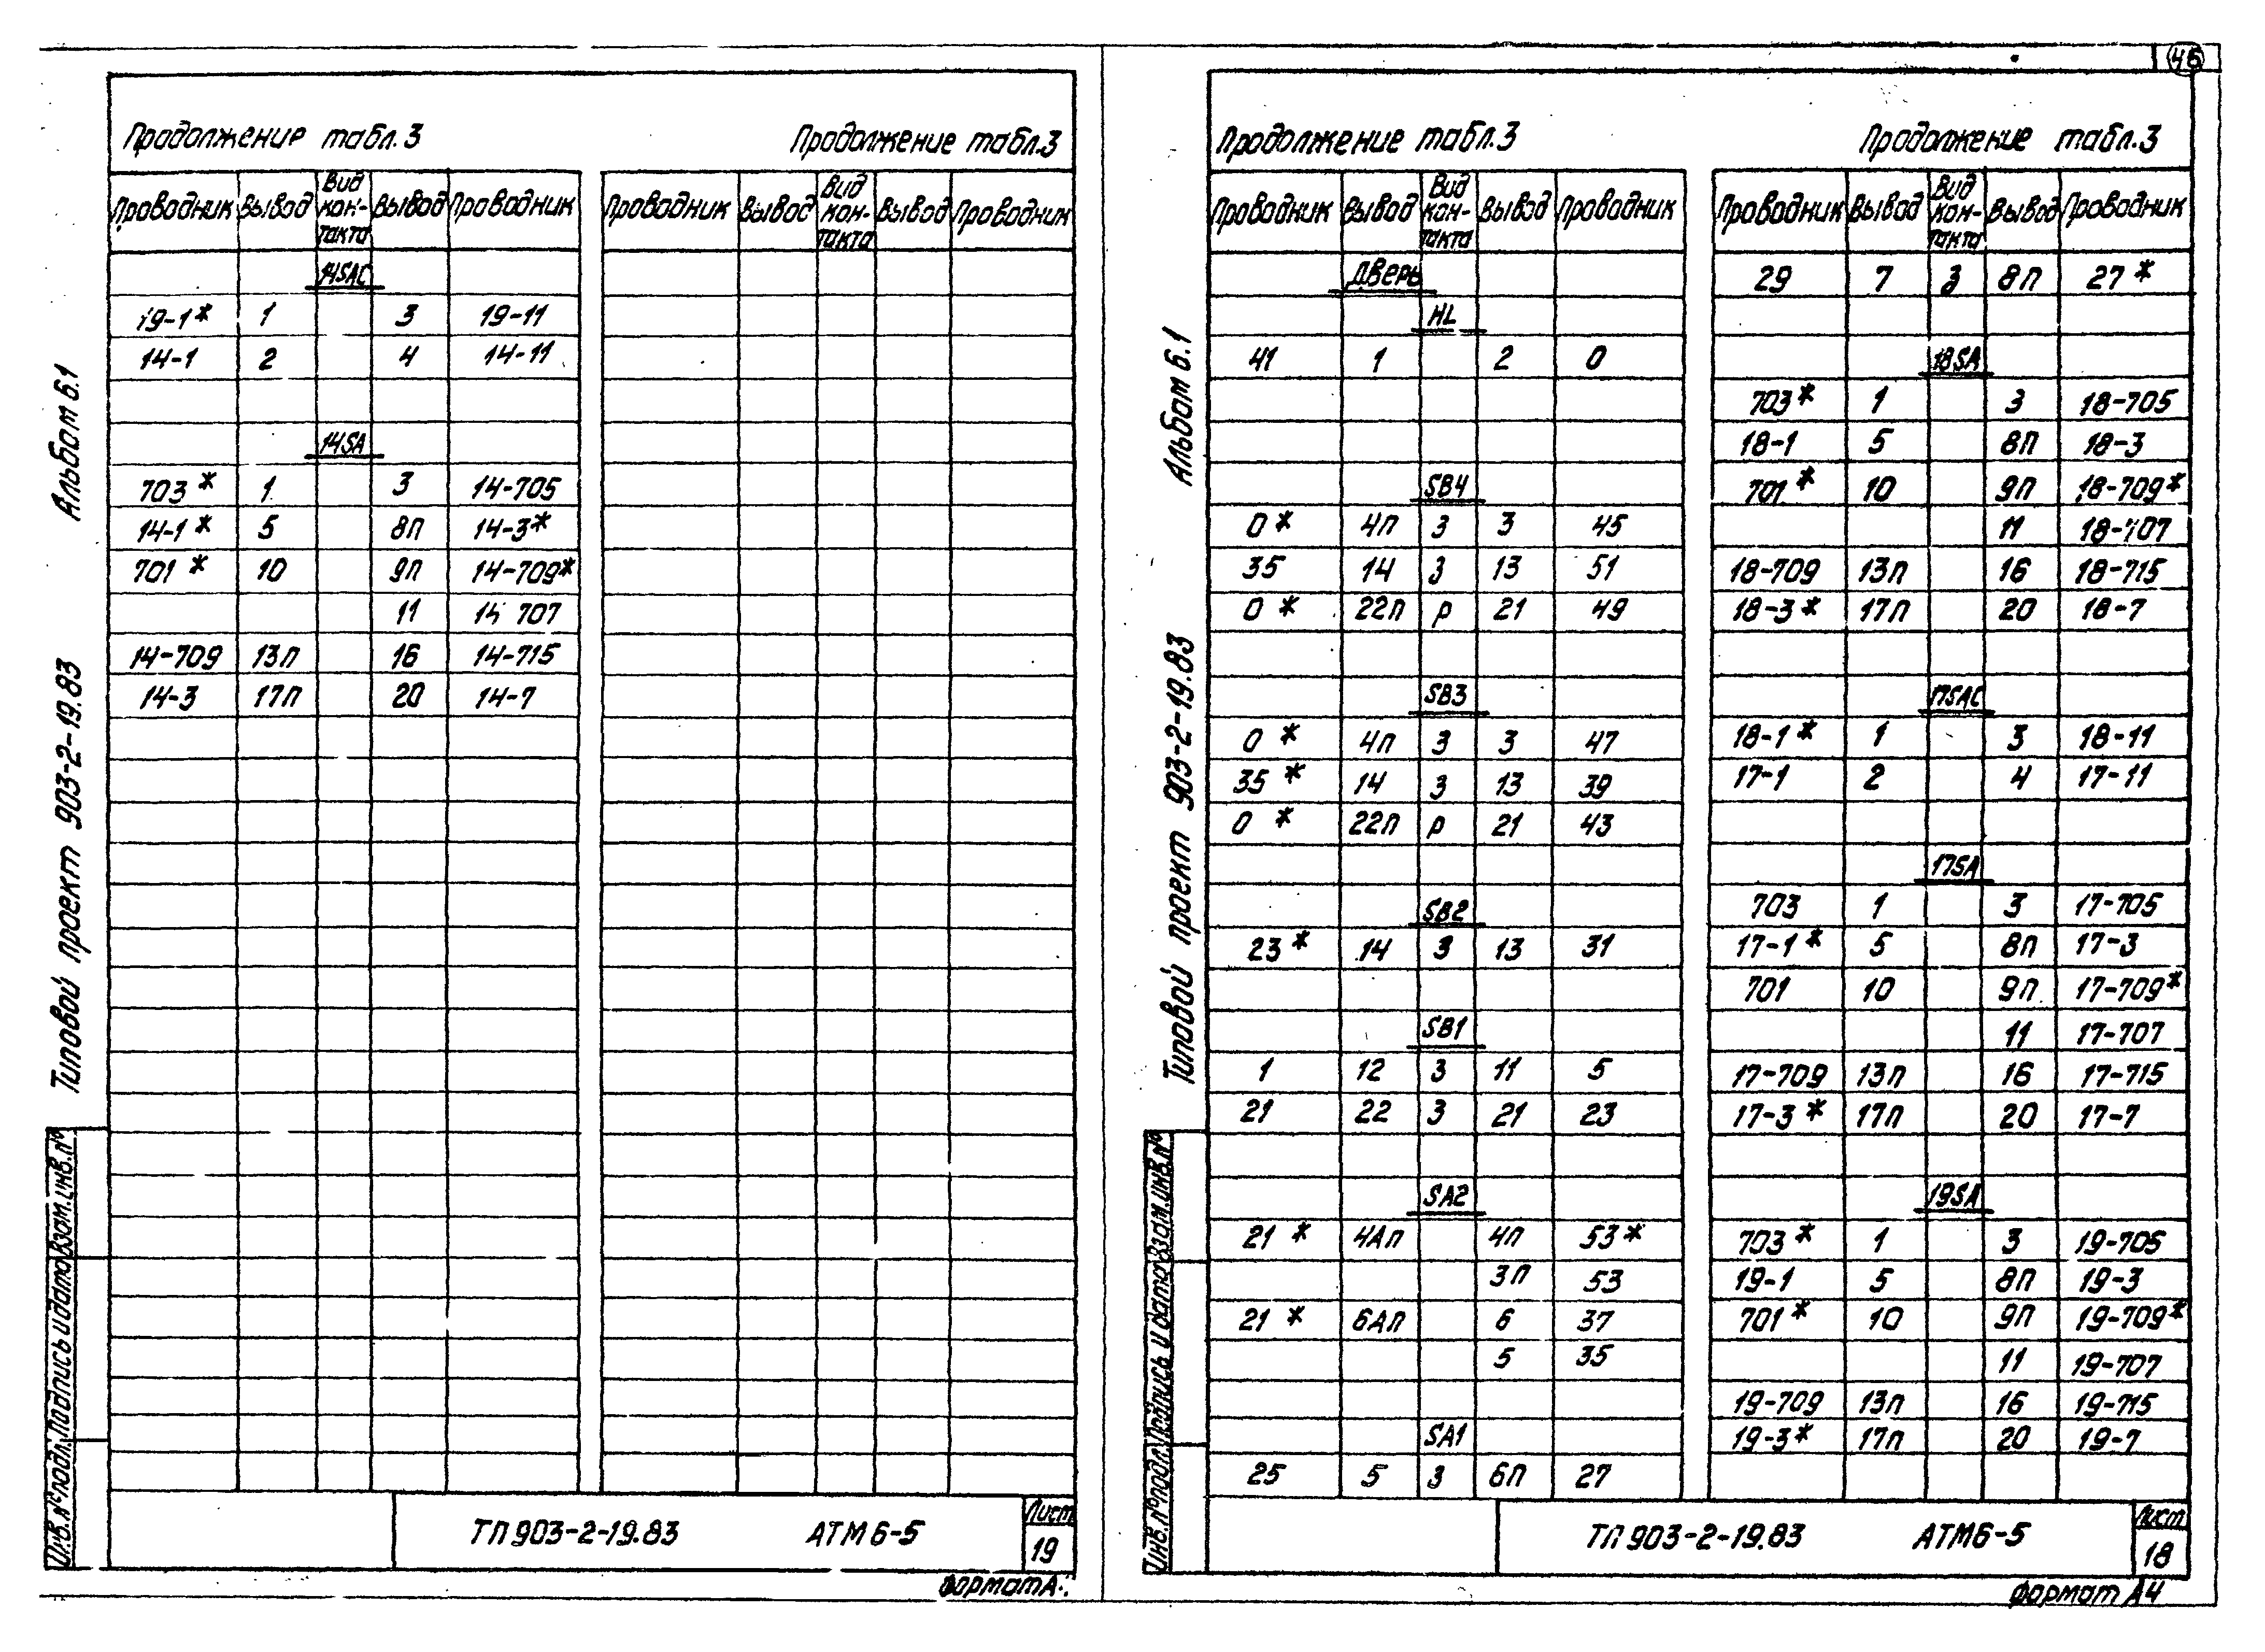 46
Продолжение табл.3
Продолжение табл.3
Проводник Вывод Вид кон- такта Вывод Проводник
Проводник Вывод Вид кон- такта Вывод Проводник
14SAC
19-1* 1 3 19-11
14-1 2 4 14-11
14SA
703* 1 3 14-705
14-1* 5 8п 14-3*
701* 10 9п 14-709*
11 14 707
14-709 13п 16 14-715
14-3 17п 20 14-7
Альбом 6.1
Типовой проект 903-2-19.83
Инв.№подл. Подпись и дата Взам.инв.№
ТП 903-2-19.83 АТМ6-5
Лист
19
Формат А
Продолжение табл.3
Продолжение табл.3
Проводник Вывод Вид кон- такта Вывод Проводник
Дверь
HL
41 1 2 0
SB4
0* 4п З 3 45
35 14 З 13 51
0* 22п р 21 49
SB3
0* 4п З 3 47
35* 14 З 13 39
0* 22п р 21 43
SB2
23* 14 З 13 31
SB1
1 12 З 11 5
21 22 З 21 23
SA2
21* 4Ап 4п 53*
3п 53
21* 6Ап 6 37
5 35
SA1
25 5 З 6п 27
Проводник Вывод Вид кон- такта Вывод Проводник
29 7 З 8п 27*
18SA
703* 1 3 18-705
18-1 5 8п 18-3
701* 10 9п 18-709*
11 18-707
18-709 13п 16 18-715
18-3* 17п 20 18-7
17SAC
18-1* 1 3 18-11
17-1 2 4 17-11
17SA
703 1 3 17-705
17-1* 5 8п 17-3
701 10 9п 17-709*
11 17-707
17-709 13п 16 17-715
17-3* 17п 20 17-7
19SA
703* 1 3 19-705
19-1 5 8п 19-3
701* 10 9п 19-709*
11 19-707
19-709 13п 16 19-715
19-3* 17п 20 19-7
Альбом 6.1
Типовой проект 903-2-19.83
Инв.№подл. Подпись и дата Взам.инв.№
ТП 903-2-19.83 АТМ6-5
Лист
18
Формат А4